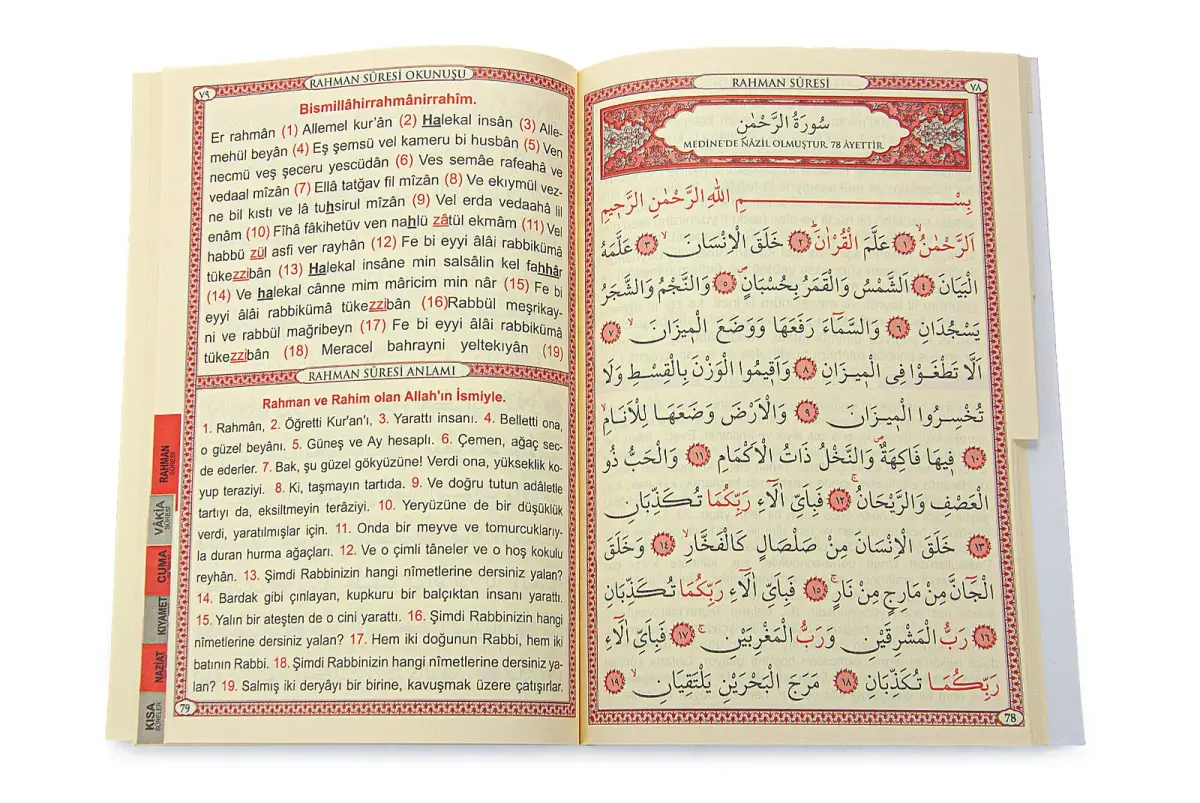 RAHMAN SÛRESİ OKUNUŞU
٧٩
Bismillâhirrahmânirrahîm.
Er rahmân (1) Allemel kur’ân (2) Halekal insân (3) Alle-
mehül beyân (4) Eş şemsü vel kameru bi husbân (5) Ven
necmü veş şeceru yescüdân (6) Ves semâe rafeahâ ve
vedaal mîzân (7) Ellâ tatğav fil mîzân (8) Ve ekıymül vez-
ne bil kıstı ve lâ tuhsirul mîzân (9) Vel erda vedaahâ lil
enâm (10) Fîhâ fâkihetüv ven nahlü zâtül ekmâm (11) Vel
habbü zül asfi ver rayhân (12) Fe bi eyyi âlâi rabbikümâ
tükezzibân (13) Halekal insâne min salsâlin kel fahhâr
(14) Ve halekal cânne mim mâricim min nâr (15) Fe bi
eyyi âlâi rabbikümâ tükezzibân (16)Rabbül meşrikay-
ni ve rabbül mağribeyn (17) Fe bi eyyi âlâi rabbikümâ
tükezzibân (18) Meracel bahrayni yeltekıyân (19)
RAHMAN SÛRESİ ANLAMI
Rahman ve Rahim olan Allah'ın İsmiyle.
1. Rahmân, 2. Öğretti Kur'an'ı, 3. Yarattı insanı. 4. Belletti ona,
o güzel beyânı. 5. Güneş ve Ay hesaplı. 6. Çemen, ağaç sec-
de ederler. 7. Bak, şu güzel gökyüzüne! Verdi ona, yükseklik ko-
yup teraziyi. 8. Ki, taşmayın tartıda. 9. Ve doğru tutun adâletle
tartıyı da, eksiltmeyin terâziyi. 10. Yeryüzüne de bir düşüklük
verdi, yaratılmışlar için. 11. Onda bir meyve ve tomurcuklarıy-
la duran hurma ağaçları. 12. Ve o çimli tâneler ve o hoş kokulu
reyhân. 13. Şimdi Rabbinizin hangi nîmetlerine dersiniz yalan?
14. Bardak gibi çınlayan, kupkuru bir balçıktan insanı yarattı.
15. Yalın bir ateşten de o cini yarattı. 16. Şimdi Rabbinizin hangi
nîmetlerine dersiniz yalan? 17. Hem iki doğunun Rabbi, hem iki
batının Rabbi. 18. Şimdi Rabbinizin hangi nîmetlerine dersiniz ya-
lan? 19. Salmış iki deryâyı bir birine, kavuşmak üzere çatışırlar.
79
RAHMAN
SÛRESİ
VÂKİA
SÛRESİ
CUMA
KIYAMET
NAZİAT
KISA
SÛRELER
RAHMAN SÛRESİ
٧٨
سُورَةُ الرَّحْمٰنِ
MEDİNE'DE NÂZİL OLMUŞTUR. 78 ÂYETTİR
بِسْمِ اللهِ الرَّحْمٰنِ الرَّحِيمِ
اَلرَّحْمٰنُۙ ﴿١﴾ عَلَّمَ الْقُرْاٰنَۜ ﴿٢﴾ خَلَقَ الْاِنْسَانَۙ ﴿٣﴾ عَلَّمَهُ
الْبَيَانَ ﴿٤﴾ اَلشَّمْسُ وَالْقَمَرُ بِحُسْبَانٍۖ ﴿٥﴾ وَالنَّجْمُ وَالشَّجَرُ
يَسْجُدَانِ ﴿٦﴾ وَالسَّمَٓاءَ رَفَعَهَا وَوَضَعَ الْم۪يزَانَۙ ﴿٧﴾
اَلَّا تَطْغَوْا فِي الْم۪يزَانِ ﴿٨﴾ وَاَق۪يمُوا الْوَزْنَ بِالْقِسْطِ وَلَا
تُخْسِرُوا الْم۪يزَانَ ﴿٩﴾ وَالْاَرْضَ وَضَعَهَا لِلْاَنَامِۙ
﴿١٠﴾ ف۪يهَا فَاكِهَةٌۖ وَالنَّخْلُ ذَاتُ الْاَكْمَامِ ﴿١١﴾ وَالْحَبُّ ذُو
الْعَصْفِ وَالرَّيْحَانُۚ ﴿١٢﴾ فَبِاَيِّ اٰلَٓاءِ رَبِّكُمَا تُكَذِّبَانِ
﴿١٣﴾ خَلَقَ الْاِنْسَانَ مِنْ صَلْصَالٍ كَالْفَخَّارِۙ ﴿١٤﴾ وَخَلَقَ
الْجَٓانَّ مِنْ مَارِجٍ مِنْ نَارٍۚ ﴿١٥﴾ فَبِاَيِّ اٰلَٓاءِ رَبِّكُمَا تُكَذِّبَانِ
﴿١٦﴾ رَبُّ الْمَشْرِقَيْنِ وَرَبُّ الْمَغْرِبَيْنِۚ ﴿١٧﴾ فَبِاَيِّ اٰلَٓاءِ
رَبِّكُمَا تُكَذِّبَانِ ﴿١٨﴾ مَرَجَ الْبَحْرَيْنِ يَلْتَقِيَانِۙ ﴿١٩﴾
78